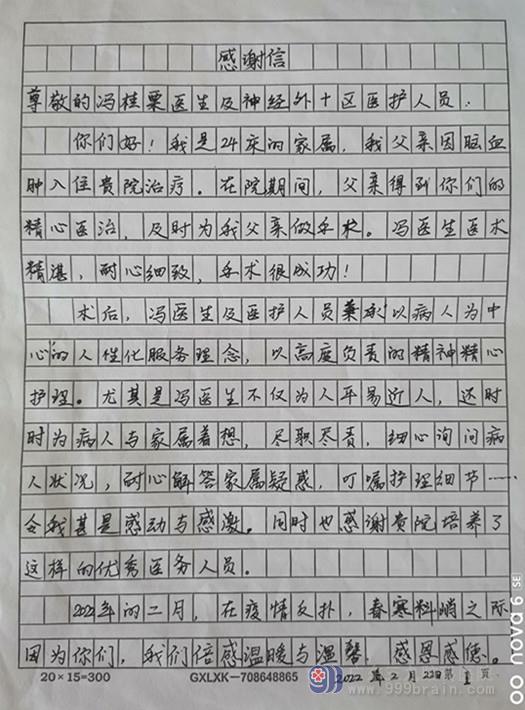 感谢信
尊敬的冯桂粟医生及神经外十区医护人员：
你们好！我是24床的家属，我父亲因脑血
肿入住贵院治疗。在院期间，父亲得到你们的
精心医治，及时为我父亲做手术。冯医生医术
精湛，耐心细致，手术很成功！
术后，冯医生及医护人员秉承以病人为中
心的人性化服务理念，以高度负责的精神精心
护理。尤其是冯医生不仅为人平易近人，还时
时为病人与家属着想，尽职尽责，细心询问病
人状况，耐心解答家属疑惑，叮嘱护理细节……
令我甚是感动与感激。同时也感谢贵院培养了
这样的优秀医务人员。
2022年的二月，在疫情反扑，春寒料峭之际
因为你们，我们倍感温暖与温馨，感恩感德。
20×15=300 GXLXK—708648865 2022年2月22日 第1页
www.999brain.com
nova 6 SE